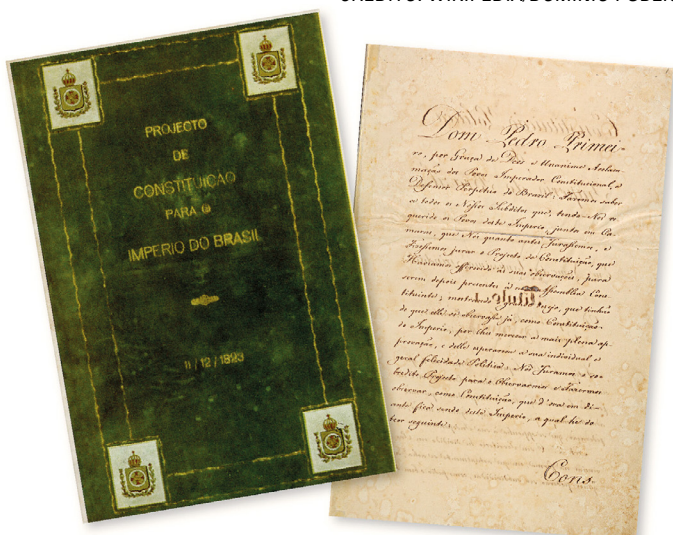 PROJECTO
DE
CONSTITUIÇAO
PARA O
IMPERIO DO BRASIL
11/12/1823
Dom Pedro Primei-
ro, por Graça de Deos e Unanime Aclam-
mação dos Povos Imperador Constitucional, e
Defensor Perpetuo do Brasil: Fazemos saber
a todos os Nossos Subditos que, tendo-Nos re-
querido os Povos deste Imperio, juntos em Ca-
maras, que Nós quanto antes, Jurassemos, e
Fizessemos jurar o Projecto de Constituição, que
Haviamos offerecido ás suas observações, para
serem depois presentes á Assembléa Cons-
tituinte; mostrando desejo, que tinhão
de que elle se observasse já, como Constituição
do Imperio, por lhes merecer a mais plena ap-
provação, e delle esperarem a sua individual e
geral felicidade Politica: Nós Juramos o so-
bredito Projecto para o Observarmos e Fazermos
observar, como Constituição, que d'ora em di-
ante fica sendo deste Imperio, a qual he do
teor seguinte:
Cons-